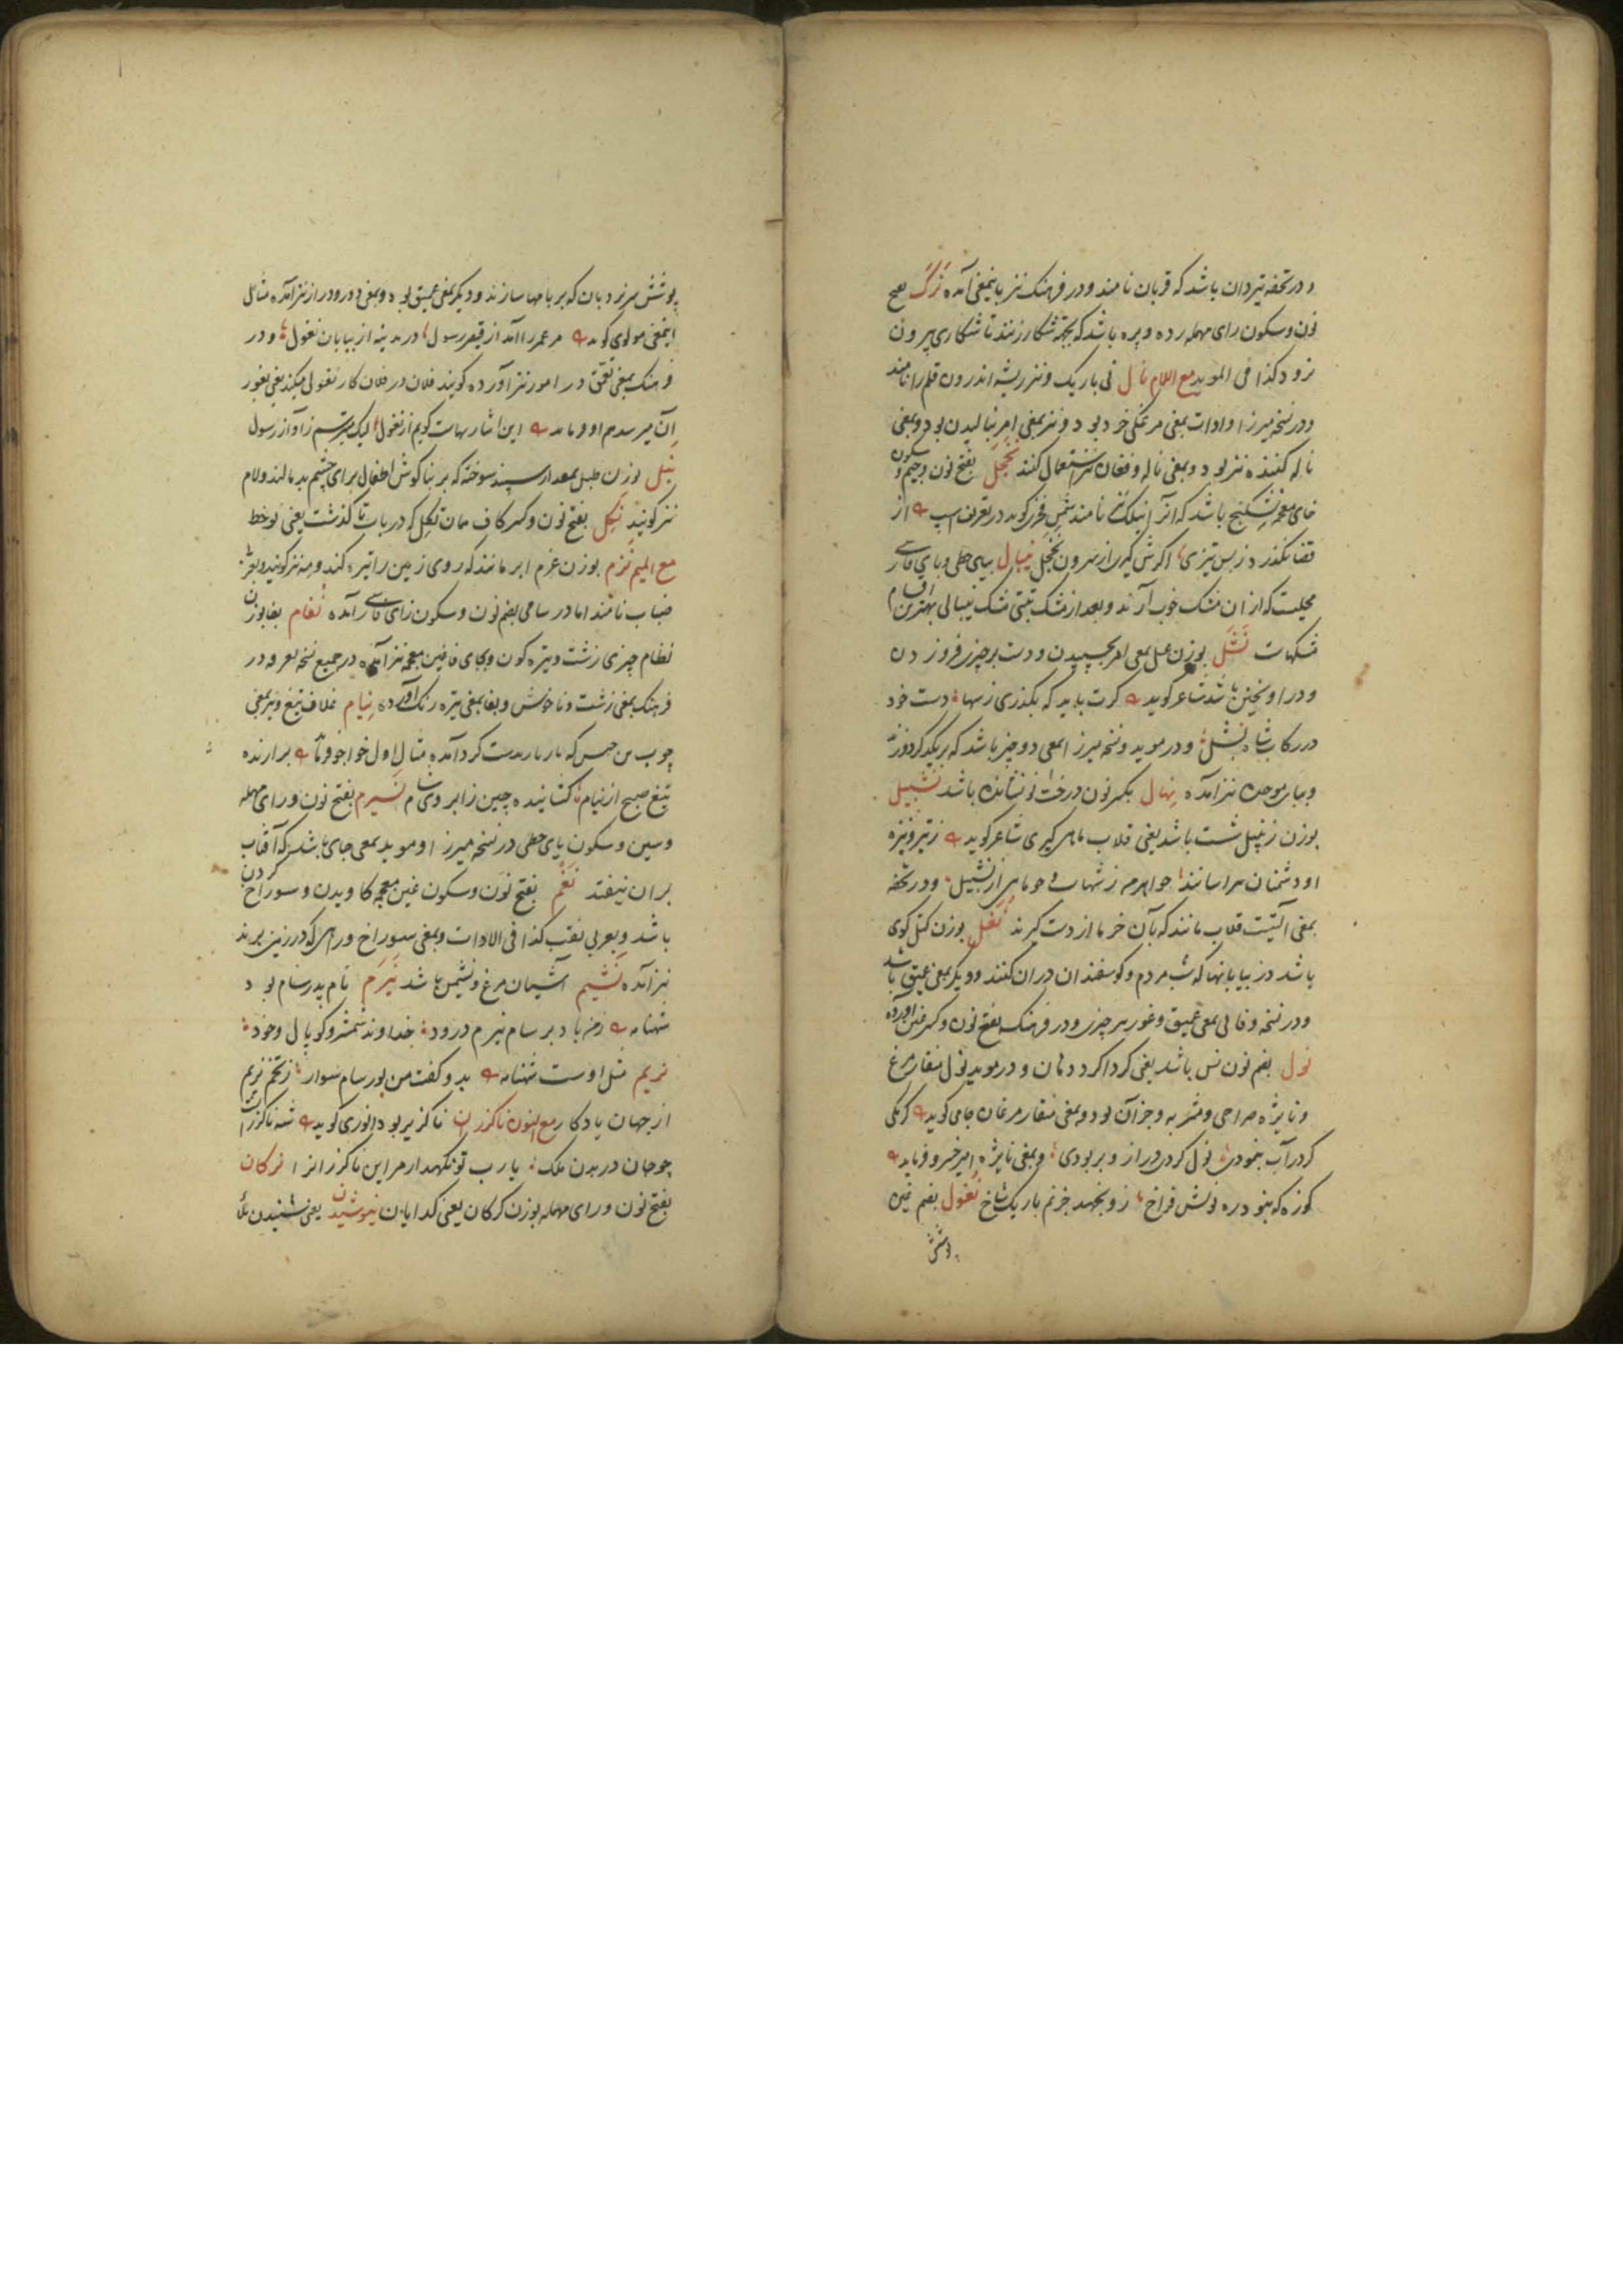 و در تحفه تیردان باشد که قربان نامند و در فرهنگ نیز باینمعنی آمده نرگ بفتح
نون و سکون رای مهمله رده و پره باشد که بجهة شکار زنند تا شکاری بیرون
نرود کذا فی الموید مع اللام نال نی باریک و نیز ریشه اندرون قلم را نامند
و در نسخه میرزا و ادات بمعنی مرغکی خرد بود و نیز بمعنی امر بنالیدن بود و بمعنی
ناله کننده نیز بود و بمعنی ناله و فغان نیز استعمال کنند نخجل بفتح نون و جیم و سکون
خای معجمه نشکنج باشد که آنرا نیلک نامند شمس فخری گوید در تعریف اسپ از
قضا نگذرد ز بس تیزی اگرش گیری از سرون نخجل نیپال بیای حطی و بای فارسی
محلیست که از ان مشک خوب آرند و بعد از مشک تبتی مشک نیپالی بهترین اقسام
مشکهاست نشل بوزن عمل بمعنی امر بچسپیدن و دست بر چیزی فروزدن
و در آویختن باشد شاعر گوید گرت باید که بگذری ز سها دست خود
در رکاب شاه بنشل و در موید و نسخه میرزا بمعنی دو چیز باشد که بریکدیگر دوزند
و ببای موحده نیز آمده نهال بکسر نون درخت نو نشانده باشد نشپیل
بوزن زنبیل شست باشد یعنی قلاب ماهی گیری شاعر گوید ز تیر و نیزه
او دشمنان هراسانند چو اهرمن ز شهاب و چو ماهی از نشپیل و در تحفه
بمعنی آلتیست قلاب مانند که بآن خرما از درخت گیرند نغل بوزن کتل گوی
باشد در بیابانها که شب مردم و گوسفندان در ان کنند و دیگر بمعنی عمیق باشد
و در نسخه وفائی بمعنی عمیق و غور هر چیزی و در فرهنگ بفتح نون و کسر غین آورده
نول بضم نون نس باشد یعنی گرداگرد دهان و در موید نول منقار مرغ
و نایژه صراحی و مشربه و جز آن بود و بمعنی منقار مرغان جامی گوید کرمکی
گر در آب بنمودی نول کردی دراز و بربودی و بمعنی نایژه امیر خسرو فرماید
کوزه که بنود ره نولش فراخ زو بجهد جز نم باریک شاخ نغول بضم غین
پوشش
پوشش سر نردبان که بر بامها سازند و دیگر بمعنی عمیق بود و بمعنی دور و دراز نیز آمده مثال
اینمعنی مولوی گوید مر عمر را آمد از قیصر رسول در مدینه از بیابان نغول و در
فرهنگ بمعنی تعمق در امور نیز آورده گویند فلان در فلان کار نغولی میکند یعنی بغور
آن میرسد هم او فرماید این اشارتهات گویم از نغول لیک میترسم ز آواز رسول
نیل بوزن طبل سپند سوخته که بر بناگوش اطفال برای چشم بد مالند و لام
نیز گویند نکل بفتح نون و کسر کاف همان تکل که در باب تا گذشت یعنی نوخط
مع المیم نزم بوزن عزم ابر مانند که روی زمین را تیره کند و مه نیز گویند و بعربی
ضباب نامند اما در سامی بضم نون و سکون زای فارسی آمده نفام بفا بوزن
نظام چیزی زشت و تیره گون و بجای فا غین معجمه نیز آمده در جمیع نسخه و در
فرهنگ بمعنی زشت و ناخوش و بفا بمعنی تیره رنگ آورده نیام غلاف تیغ و نیز بمعنی
چوب مثال اول خواجو فرماید برآرنده
تیغ صبح از نیام گشاینده چین ز ابروی شام نسیرم بفتح نون و رای مهمله
و سین و سکون یای حطی در نسخه میرزا و موید بمعنی جای باشد که آفتاب
بر ان نیفتد نغم بفتح نون و سکون غین معجمه کاویدن و سوراخ کردن
باشد و بعربی نقب کذا فی الادات و بمعنی سوراخ و راهی که در زمین برند
نیز آمده نشیم آشیان مرغ و نشیمن باشد نیرم نام پدر سام بود
شهنامه ز من باد بر سام نیرم درود خداوند شمشیر و کوپال و خود
نریم مثل اوست شهنامه بدو گفت من پور سام سوار ز تخم نریم
از جهان یادگار مع النون ناگزران ناگزیر بود انوری گوید شه ناگزران
چو جان در بدن ملک یا رب تو نگهدار مر این ناگزران را نرکان
بفتح نون و رای مهمله بوزن کرکان یعنی گدایان نیوشیدن یعنی شنیدن